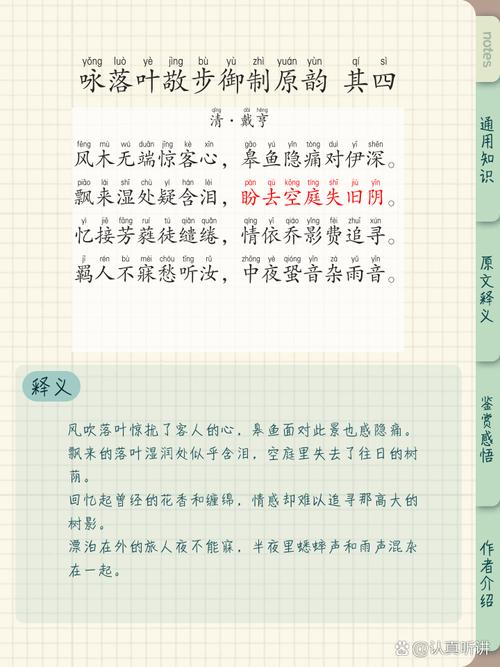 yǒng luò yè jìng bù yù zhì yuán yùn qí sì
咏落叶敬步御制原韵 其四
qīng dài hēng
清·戴亨
fēng mù wú duān jīng kè xīn gāo yú yǐn tòng duì yī shēn
风木无端惊客心，皋鱼隐痛对伊深。
piāo lái shī chù yí hán lèi pàn qù kōng tíng shī jiù yīn
飘来湿处疑含泪，盼去空庭失旧阴。
yì jiē fāng ruí tú qiǎn quǎn qíng yī qiáo yǐng fèi zhuī xún
忆接芳蕤徒缱绻，情依乔影费追寻。
jī rén bù mèi chóu tīng rǔ zhōng yè qióng yīn zá yǔ yīn
羁人不寐愁听汝，中夜蛩音杂雨音。
释义
风吹落叶惊扰了客人的心，皋鱼面对此景也感隐痛。
飘来的落叶湿润处似乎含泪，空庭里失去了往日的树
荫。
回忆起曾经的花香和缠绵，情感却难以追寻那高大的
树影。
漂泊在外的旅人夜不能寐，半夜里蟋蟀声和雨声混杂
在一起。
notes
通用知识
原文释义
鉴赏感悟
作者介绍
@认真听讲